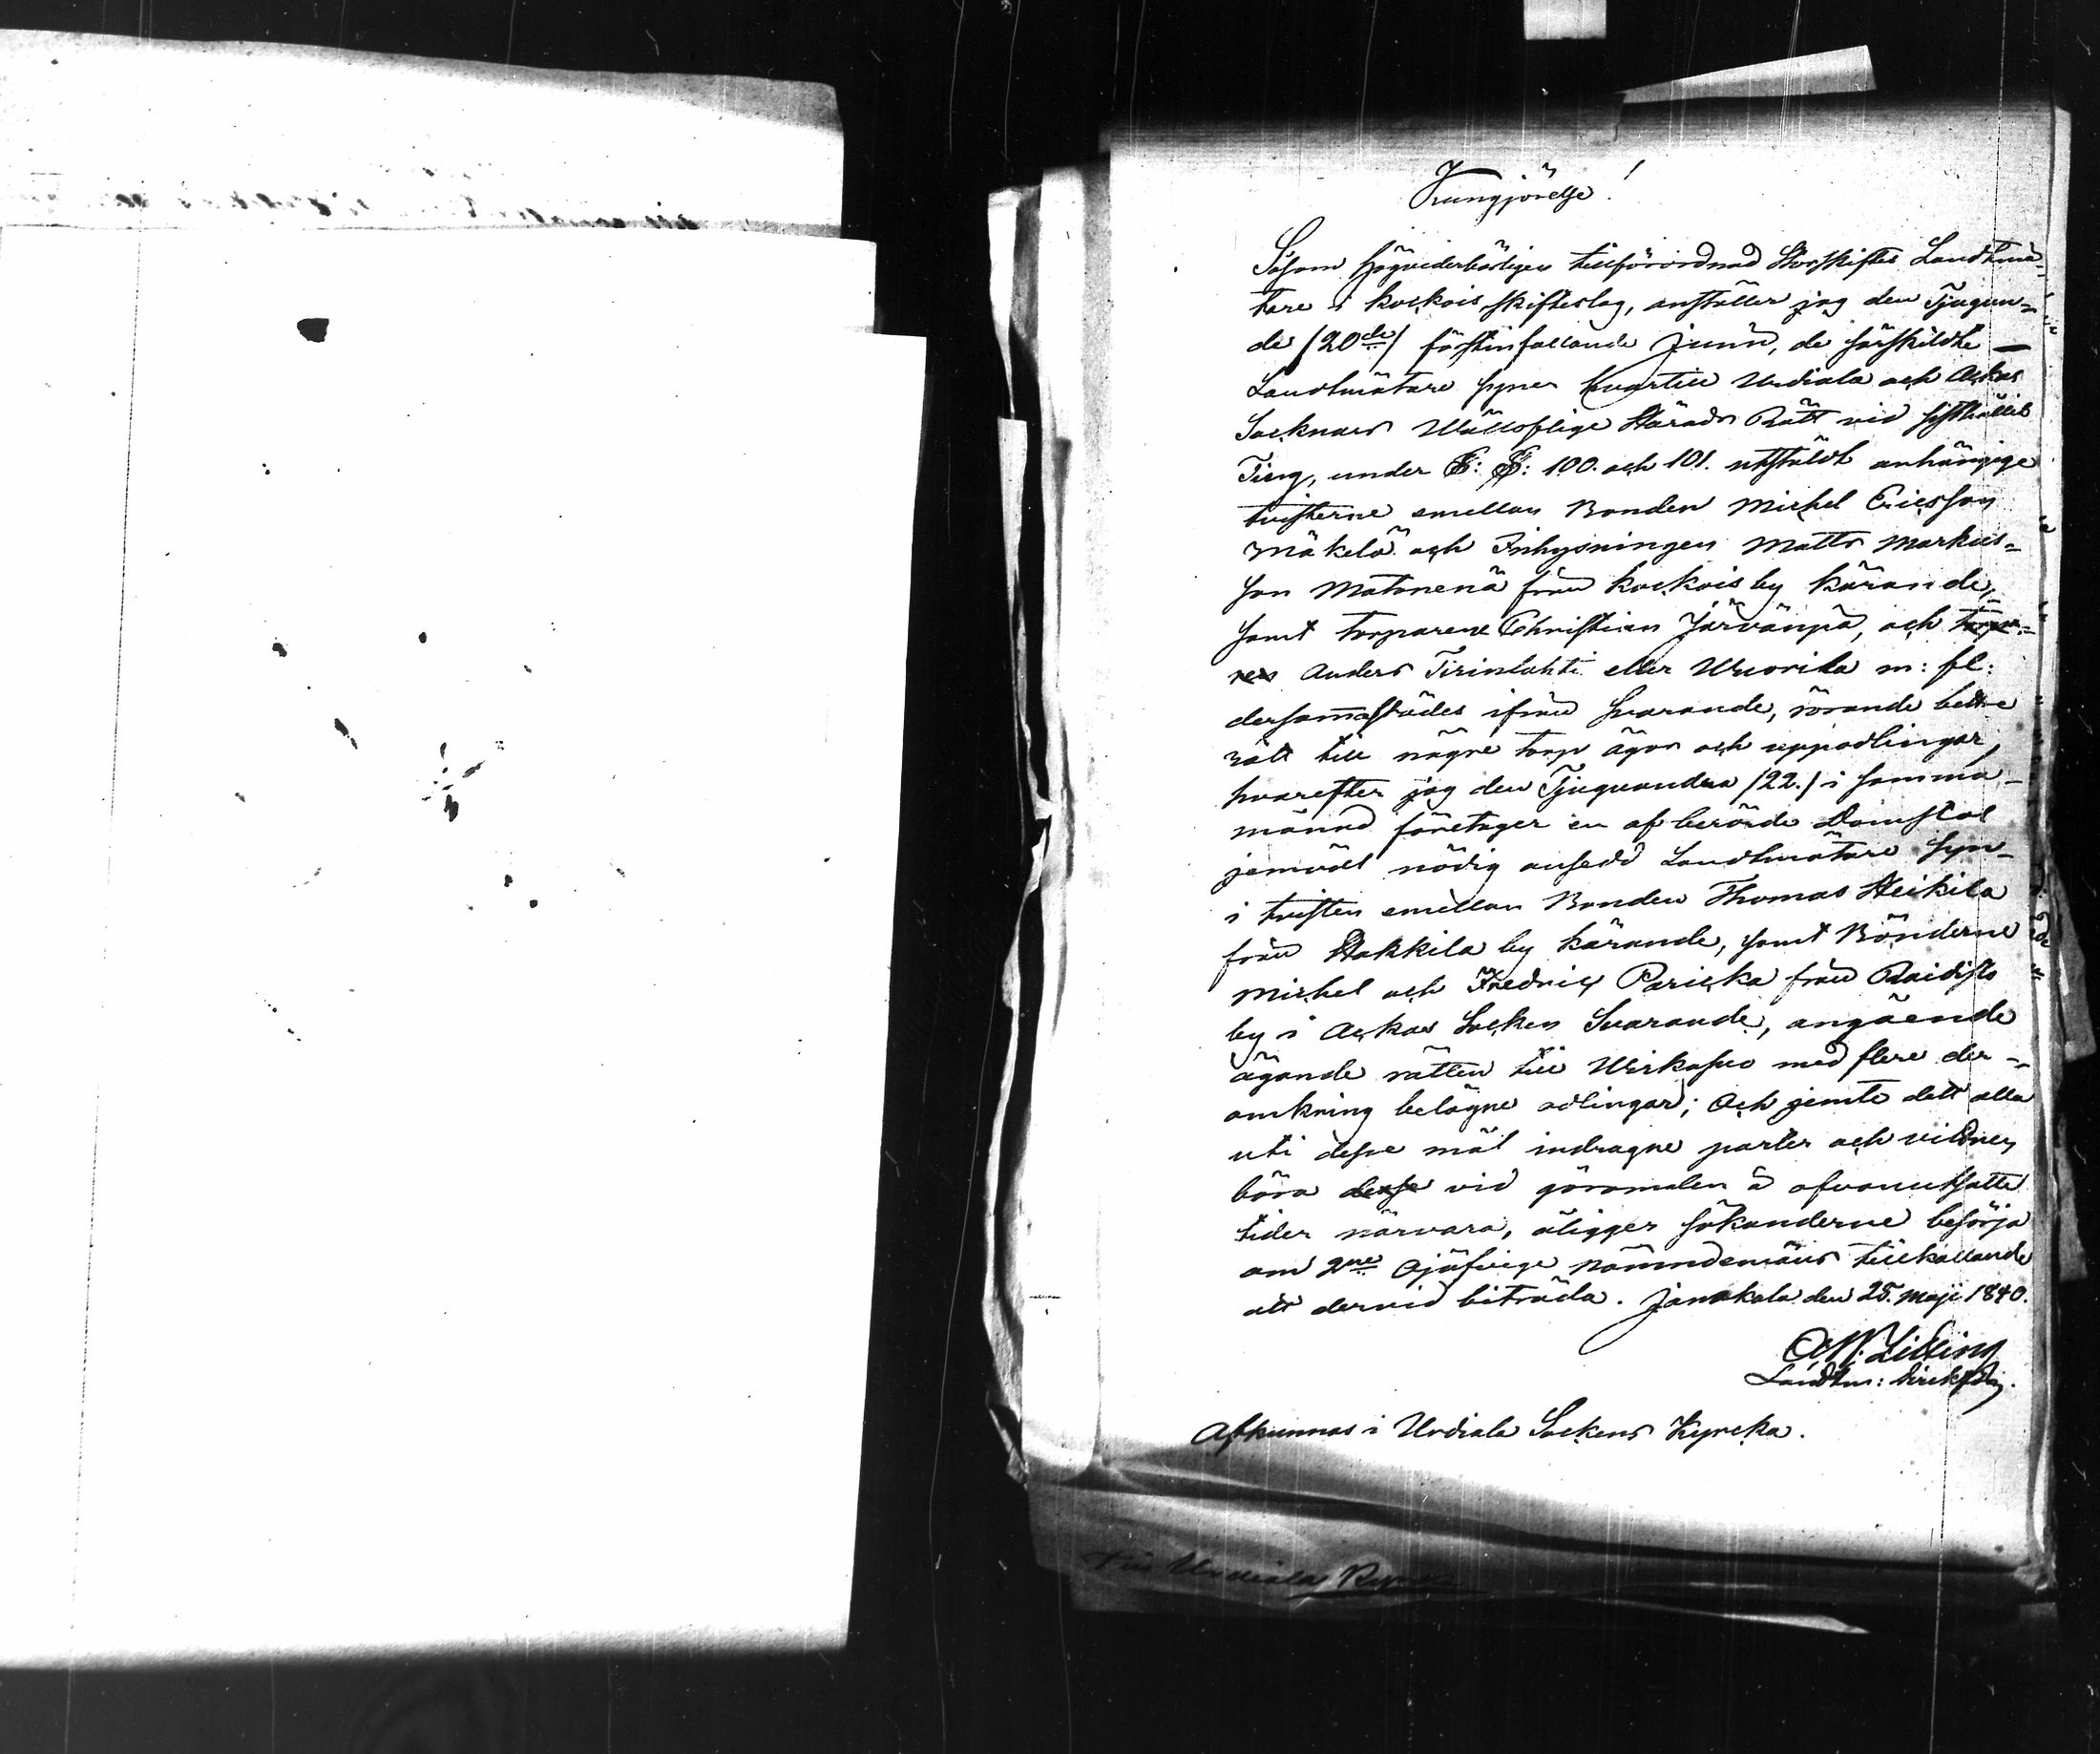 Kungjörelse!
Såsom Högvederbörligen tillförordnad Storskiftes Landtmä-
tare i Kockois skifteslag, anställer jag den Tjugun-
de /20de/ förstinfallande Junii, de särskildte
Landtmätare syner hvartill Urdiala och Ackas
Socknars Wällofliga Härads Rätt vid sisthållet
Ting, under §: §: 100. och 101. utstäldt anhängige
tvisterne emellan Bonden Michel Ericsson
Mäkelä och Inhysningen Matts Markus-
son Matonenä från Kockois by kärande,
samt torparene Christian Järvänpä, och torpa-
ren Anders Tirinlahti eller Wuorila m: fl:
dersammastädes ifrån svarande, rörande bettre
rätt till någre torp ägor och uppodlingar,
hvarefter jag den Tjuguandra /22./ i samma
månad företager en af berörde Domstol
jemväl nödig ansedd Landtmätare syn
i tvisten emellan Bonden Thomas Heikila
från Hakkila by kärande, samt Bönderne
Michel och Fredric Paricka från Raidisto
by i Ackas Socken Svarande, angående
ägande rätten till Wirkasuo med flere der-
omkring belägne odlingar; Och jemte dett alla
uti desse mål indragne parter och vittnen
böra desse vid göromålen å ofvanutsatte
tider närvara, åligger sökanderne besörja
om 2ne ojäfvige nämndemäns tillkallande
att dervid biträda. Janakala den 25. Maji 1840.
Landtm:
Afkunnas i Urdiala Sockens Kyrcka.
Till Urdiala